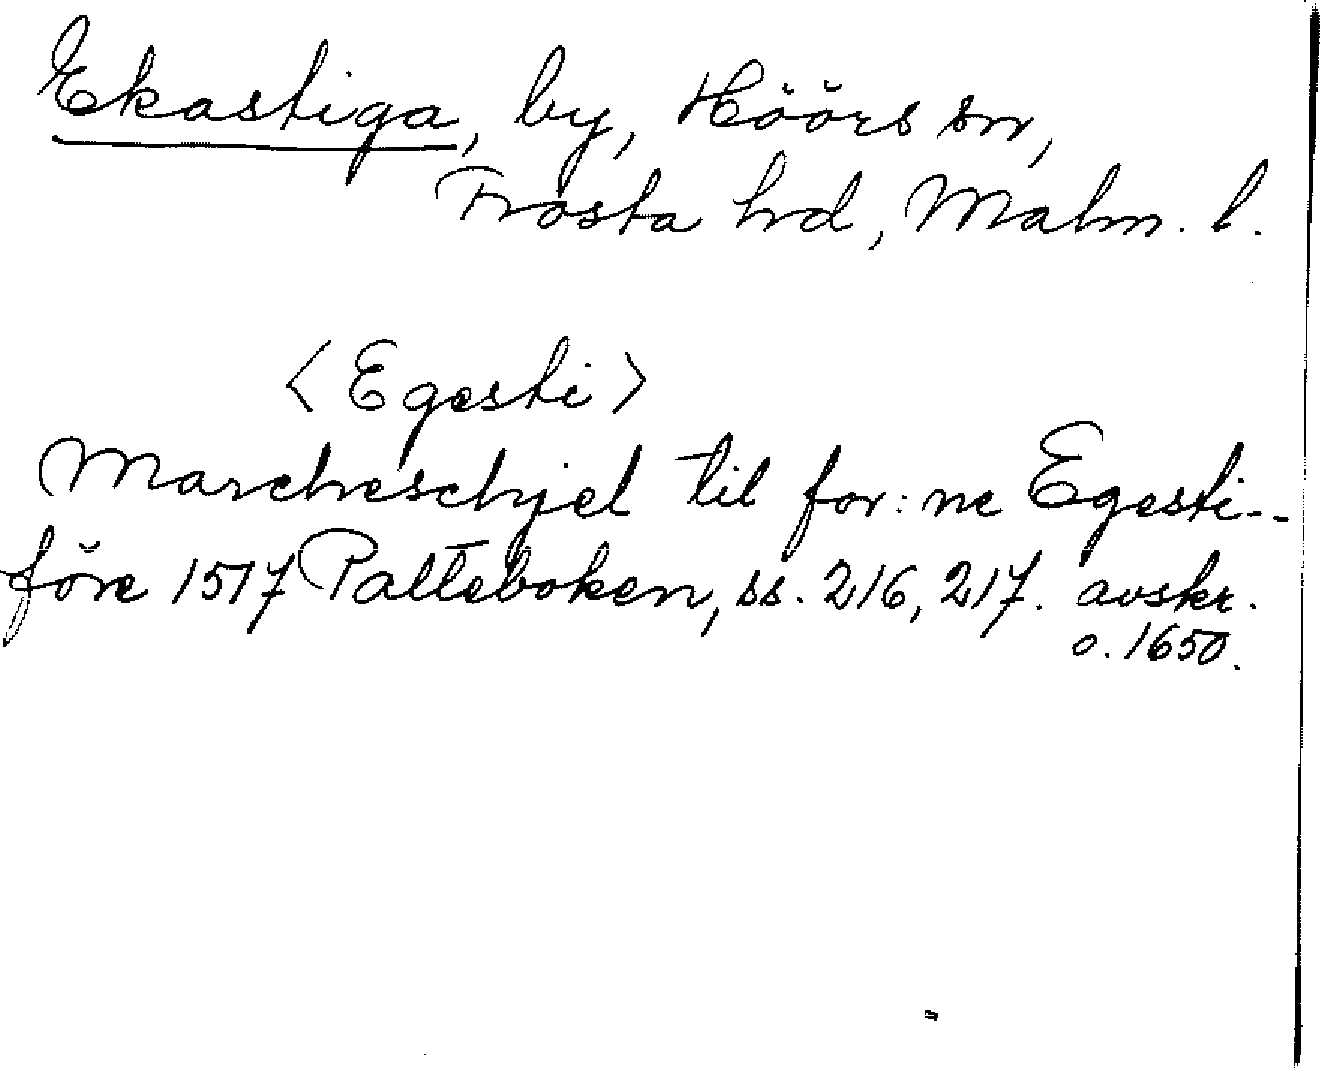 Ekastiga, by, Höörs sn,
Frosta hd, Malm. l.
<Egesti>
Marcheschjel til for: ne Egesti--
före 1517 Palteboken, ss. 216, 217. avskr.
o. 1650.